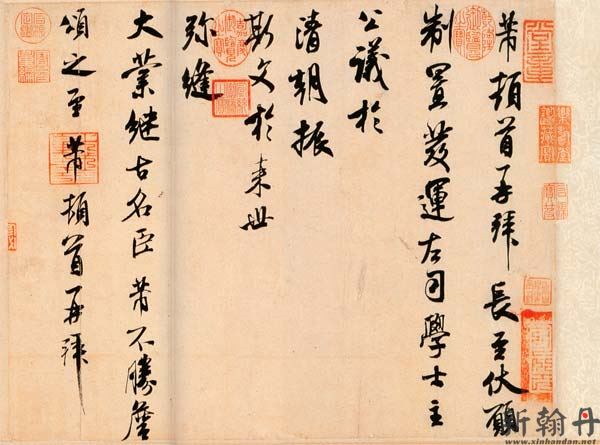 芾頓首再拜 長至伏願
制置發運左司學士主
公議於
清朝振
斯文於来世
弥縫
大業继古名臣芾不勝瞻
頌之至芾頓首再拜
新翰丹
www.xinhandan.net